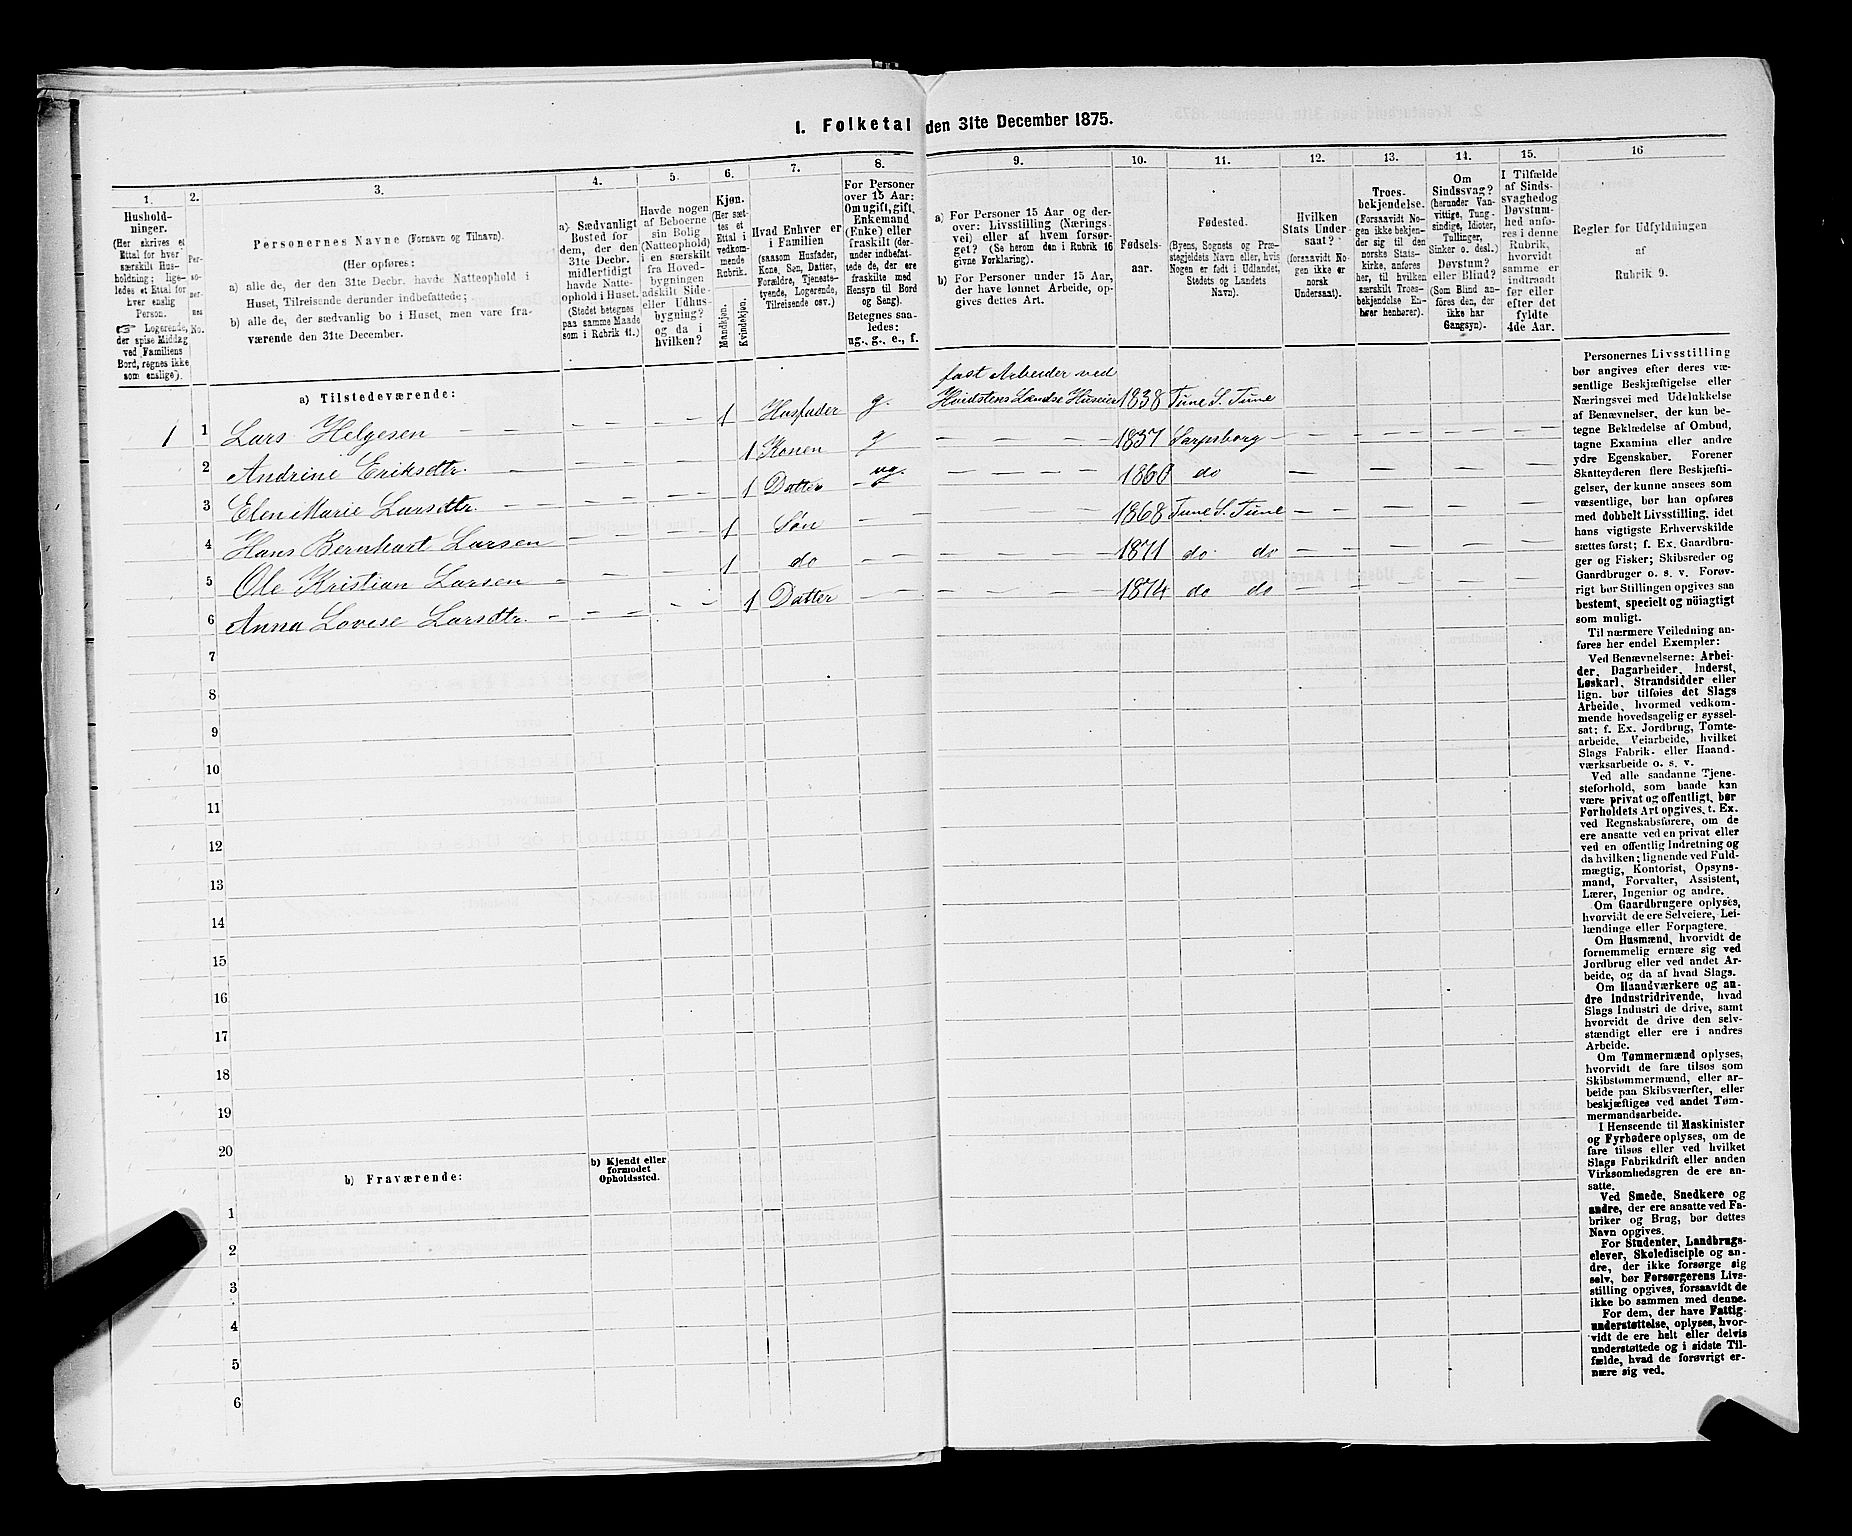 I. Folketal den 31te December 1875.
1.
Hushold-
ninger.
(Her skrives et
Ettal for hver
særskilt Hus-
holdning; lige-
ledes et Ettal for
hver enslig
Person.
☞ Logerende,
der spise Middag
ved Familiens
Bord, regnes ikke
som enslige).
2.
Per-
so-
ner-
nes
No.
3.
Personernes Navne (Fornavn og Tilnavn).
(Her opføres:
a) alle de, der den 31te Decbr. havde Natteophold i
Huset, Tilreisende derunder indbefattede;
b) alle de, der sædvanlig bo i Huset, men vare fra-
værende den 31te December.
4.
a) Sædvanligt
Bosted for
dem, der den
31te Decbr.
midlertidigt
havde Natte-
ophold i Huset.
(Stedet betegnes
paa samme Maade
som i Rubrik 11.)
5.
Havde nogen
af Beboerne
sin Bolig
(Natteophold)
i en særskilt
fra Hoved-
bygningen
adskilt Side-
eller Udhus-
bygning?
og da i
hvilken?
6.
Kjøn.
(Her sæt-
tes et
Ettal i
vedkom-
mende
Rubrik.
Mandkjøn.
Kvindekjøn.
7.
Hvad Enhver er
i Familien
(saasom Husfader,
Kone, Søn, Datter,
Forældre, Tjeneste-
tyende, Logerende,
Tilreisende osv.)
8.
For Personer
over 15 Aar:
Om ugift, gift,
Enkemand
(Enke) eller
fraskilt (der-
under indbefat-
tede de, der ere
fraskilte med
Hensyn til Bord
og Seng).
Betegnes saa-
ledes:
ug., g., e., f.
9.
a) For Personer 15 Aar og der-
over: Livsstilling (Nærings-
vei) eller af hvem forsør-
get? (Se herom den i Rubrik 16
givne Forklaring).
b) For Personer under 15 Aar,
der have lønnet Arbeide, op-
gives dettes Art.
10.
Fødsels-
aar.
11.
Fødested.
(Byens, Sognets og Præ-
stegjeldets Navn eller, hvis
Nogen er født i Udlandet,
Stedets og Landets
Navn).
12.
Hvilken
Stats Under-
saat?
(forsaavidt No-
gen ikke er
norsk
Undersaat).
13.
Troes-
bekjendelse.
(Forsaavidt No-
gen ikke bekjen-
der sig til den
norske Stats-
kirke, anføres
her, til hvilken
særskilt Troes-
bekjendelse En-
hver henhører).
14.
Om
Sindssvag?
(herunder Van-
vittige, Tung-
sindige, Idioter,
Tullinger,
Sinker o. desl.)
Døvstum?
eller Blind?
(Som Blind an-
føres den, der
ikke har
Gangsyn).
15.
I Tilfælde
af Sinds-
svaghed og
Døvstum-
hed anfø-
res i denne
Rubrik,
hvorvidt
samme er
indtraadt
før eller
efter det
fyldte
4de Aar.
16
Regler for Udfyldningen
af
Rubrik 9.
a) Tilstedeværende:
1 1 Lars Helgesen — — — 1 Husfader g. fast Arbeider ved
Hvidstens Landse Huseier 1838 Tune S. Tune
2 Andrine Eriksdtr. 1 Konen g 1837 Sarpsborg
3 Elen Marie Larsdtr. 1 Datter ug. 1860 do
4 Hans Bernhart Larsen 1 Søn 1868 Tune S. Tune
5 Ole Kristian Larsen 1 do 1871 do do
6 Anna Lovise Larsdtr. 1 Datter 1874 do do
7
8
9
10
11
12
13
14
15
16
17
18
19
20
b) Fraværende:
b) Kjendt eller
formodet
Opholdssted.
1
2
3
4
5
6
Personernes Livsstilling
bør angives efter deres væ-
sentlige Beskjæftigelse eller
Næringsvei med Udelukkelse
af Benævnelser, der kun be-
tegne Beklædelse af Ombud,
tagne Examina eller andre
ydre Egenskaber. Forener
Skatteyderen flere Beskjæfti-
gelser, der kunne ansees som
væsentlige, bør han opføres
med dobbelt Livsstilling, idet
hans vigtigste Erhvervskilde
sættes først; f. Ex. Gaardbru-
ger og Fisker; Skibsreder og
Gaardbruger o. s. v. Forøv-
rigt bør Stillingen opgives saa
bestemt, specielt og nöiagtigt
som muligt.
Til nærmere Veiledning an-
føres her endel Exempler:
Ved Benævnelserne: Arbei-
der, Dagarbeider, Inderst,
Løskarl, Strandsidder eller
lign. bør tilføies det Slags
Arbeide, hvormed vedkom-
mende hovedsagelig er syssel-
sat; f. Ex. Jordbrug, Tomte-
arbeide, Veiarbeide, hvilket
Slags Fabrik- eller Haand-
værksarbeide o. s. v.
Ved alle saadanne Tjene-
steforhold, som baade kan
være privat og offentligt, bør
Forholdets Art opgives, t. Ex.
ved Regnskabsførere, om de
ere ansatte ved en privat eller
ved en offentlig Indretning og
da hvilken; lignende ved Fuld-
mægtig, Kontorist, Opsyns-
mand, Forvalter, Assistent,
Lærer, Ingeniør og andre.
Om Gaardbrugere oplyses,
hvorvidt de ere Selveiere, Lei-
lændinge eller Forpagtere.
Om Husmænd, hvorvidt de
fornemmelig ernære sig ved
Jordbrug eller ved andet Ar-
beide, og da af hvad Slags.
Om Haandværkere og an-
dre Industridrivende, hvad
Slags Industri de drive, samt
hvorvidt de drive den selv-
stændigt eller ere i andres
Arbeide.
Om Tømmermænd oplyses,
hvorvidt de fare tilsøs som
Skibstømmermænd, eller ar-
beide paa Skibsværfter, eller
beskjæftiges ved andet Tøm-
mermandsarbeide.
I Henseende til Maskinister
og Fyrbødere oplyses, om de
fare tilsøs eller ved hvilket
Slags Fabrikdrift eller anden
Virksomhedsgren de ere an-
satte.
Ved Smede, Snedkere og
andre, der ere ansatte ved Fa-
briker og Brug, bør dettes
Navn opgives.
For Studenter, Landbrugs-
elever, Skoledisciple og an-
dre, der ikke forsørge sig
selv, bør Forsørgerens Livs-
stilling opgives, forsaavidt de
ikke bo sammen med denne.
For dem, der have Fattig-
understøttelse, oplyses, hvor-
vidt de ere helt eller delvis
understøttede og i sidste Til-
fælde, hvad de forøvrigt er-
nære sig ved.